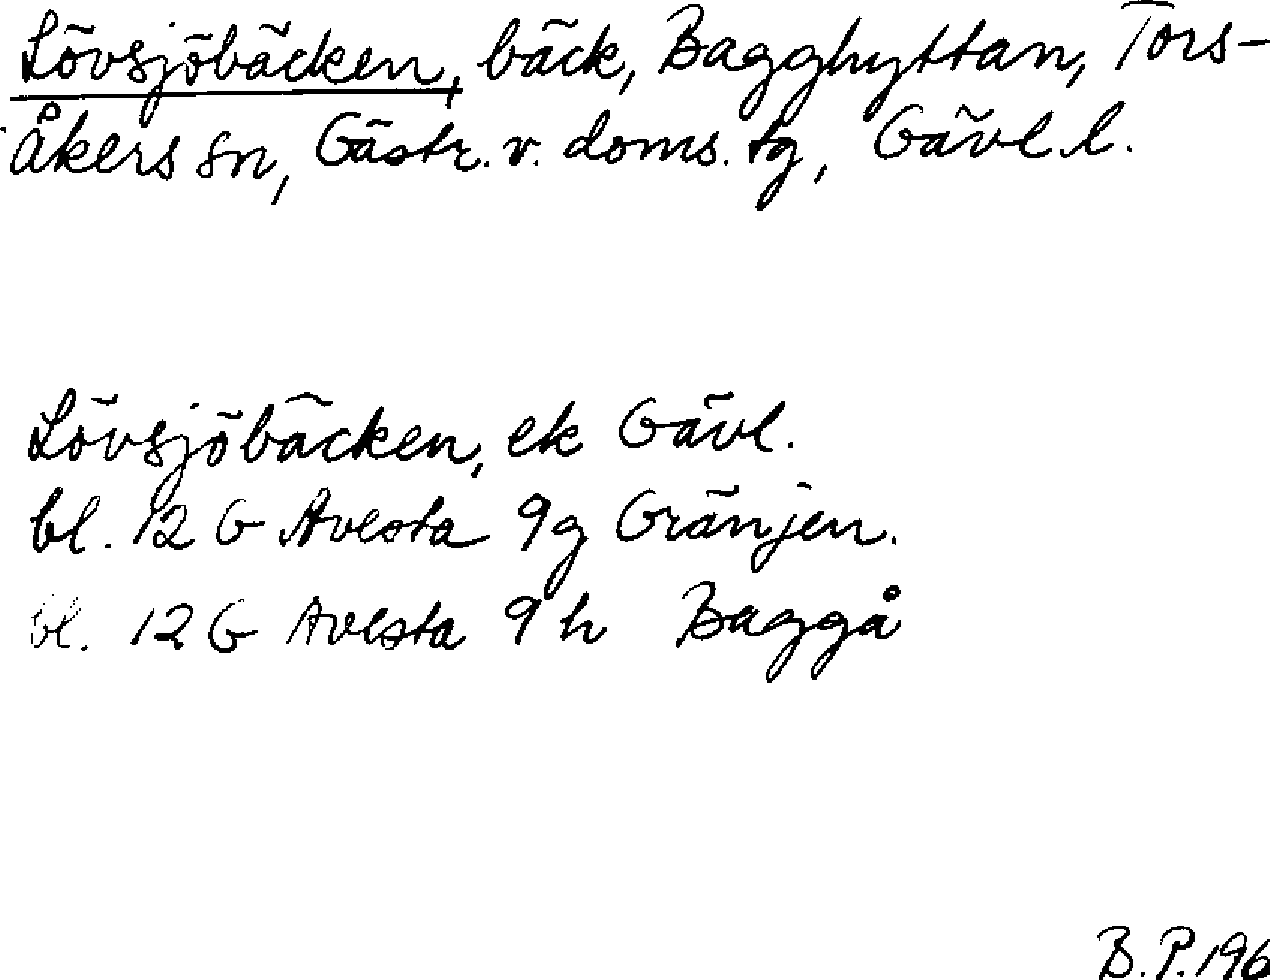 Lövsjöbäcken, bäck, Bagghyttan, Tors-
åkers sn, Gästr. v. doms. tg, Gävl. l.
Lövsjöbäcken, ek Gävl.
bl. 12 G Avesta 9g Gränjen.
bl. 12 G Avesta 9 h Baggå
B. P. 196